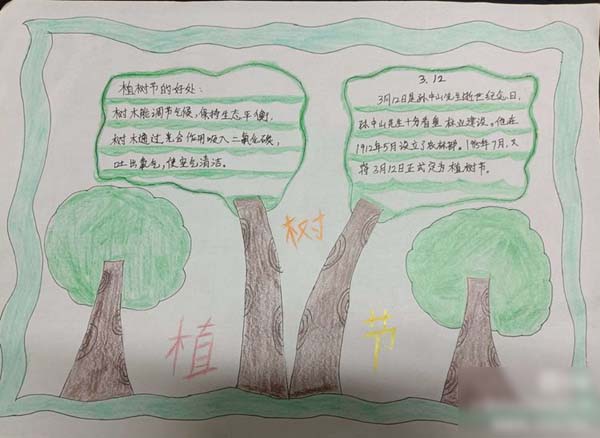 植树节的好处:
树木能调节气候,保持生态平衡,
树木通过光合作用吸入二氧化碳,
吐出氧气,使空气清洁。
3.12
3月12日是孙中山先生逝世纪念日,
孙中山先生十分看重林业建设。他在
1912年5月设立了农林部。1915年7月,又
将3月12日正式定为植树节。
树
植
节